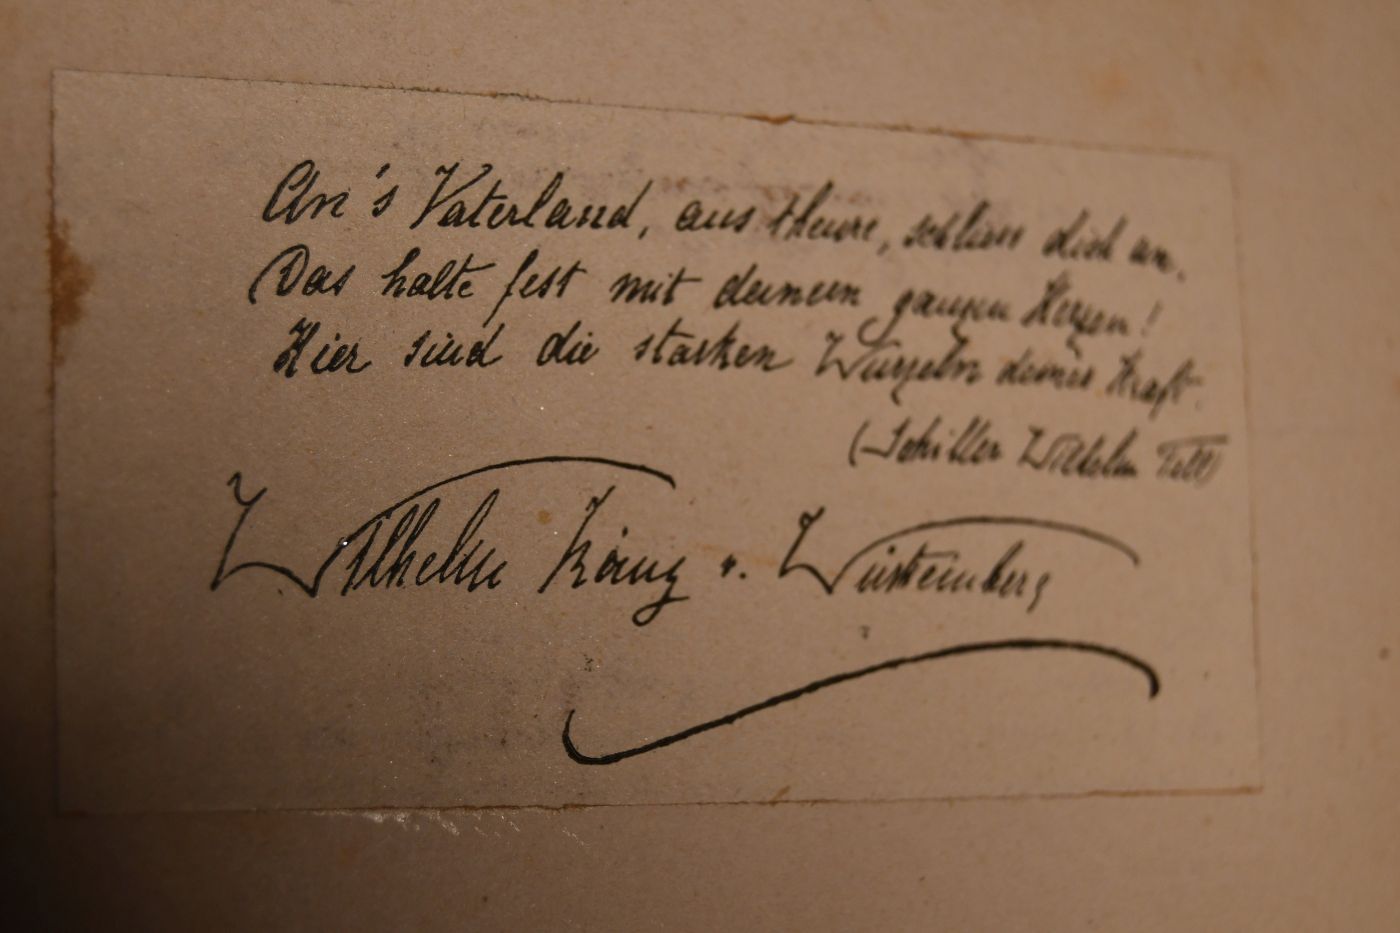 An's Vaterland, aus theure, schliess dich an,
Das halte fest mit deinem ganzen Herzen!
Hier sind die starken Wurzeln deiner Kraft.
(Schiller Wilhelm Tell)
Wilhelm König v. Württemberg